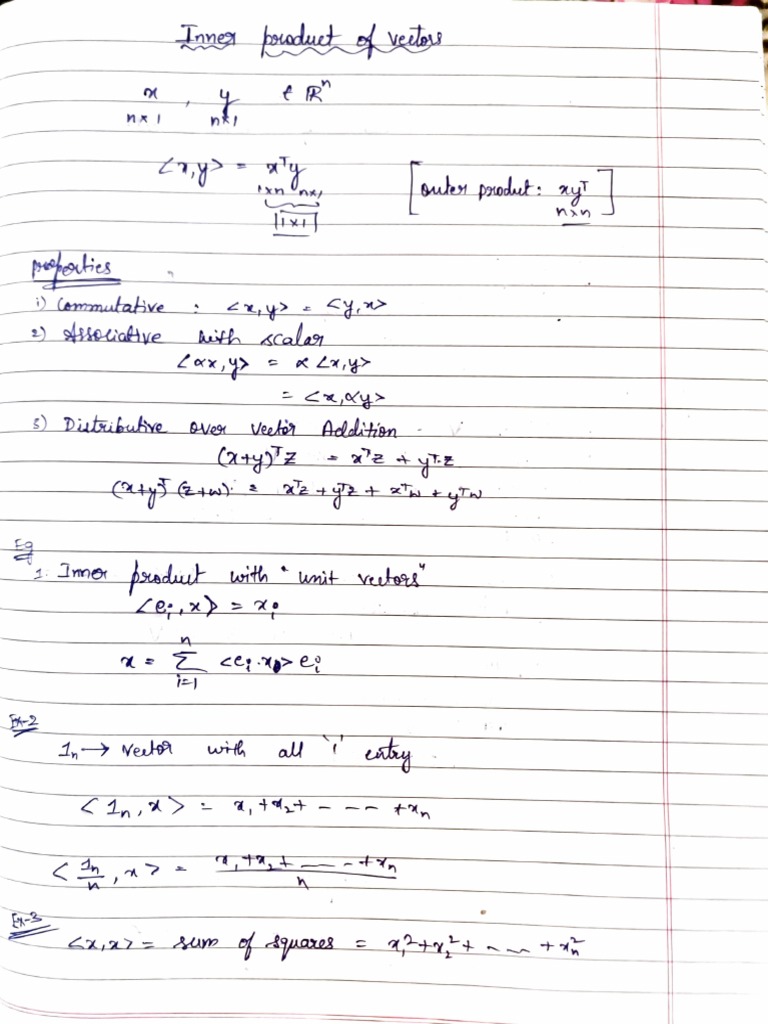 Inner product of vectors
x , y ∈ ℝⁿ
n×1 n×1
<x,y> = xᵀy [outer product: xyᵀ]
1×n n×1 n×n
1×1
properties
1) Commutative : <x,y> = <y,x>
2) Associative with scalar
<αx,y> = α <x,y>
= <x,αy>
3) Distributive over vector Addition
(x+y)ᵀz = xᵀz + yᵀ.z
(x+y)ᵀ (z+w) = xᵀz + yᵀz + xᵀw + yᵀw
Eg
1. Inner product with "unit vectors"
<eᵢ,x> = xᵢ
n
x = Σ <eᵢ.x> eᵢ
i=1
Ex-2
1ₙ → vector with all '1' entry
<1ₙ,x> = x₁+x₂+ - - - - +xₙ
<1ₙ/n , x> = x₁+x₂+ - - - +xₙ / n
Ex-3
<x,x> = sum of squares = x₁²+x₂²+ - - - + xₙ²